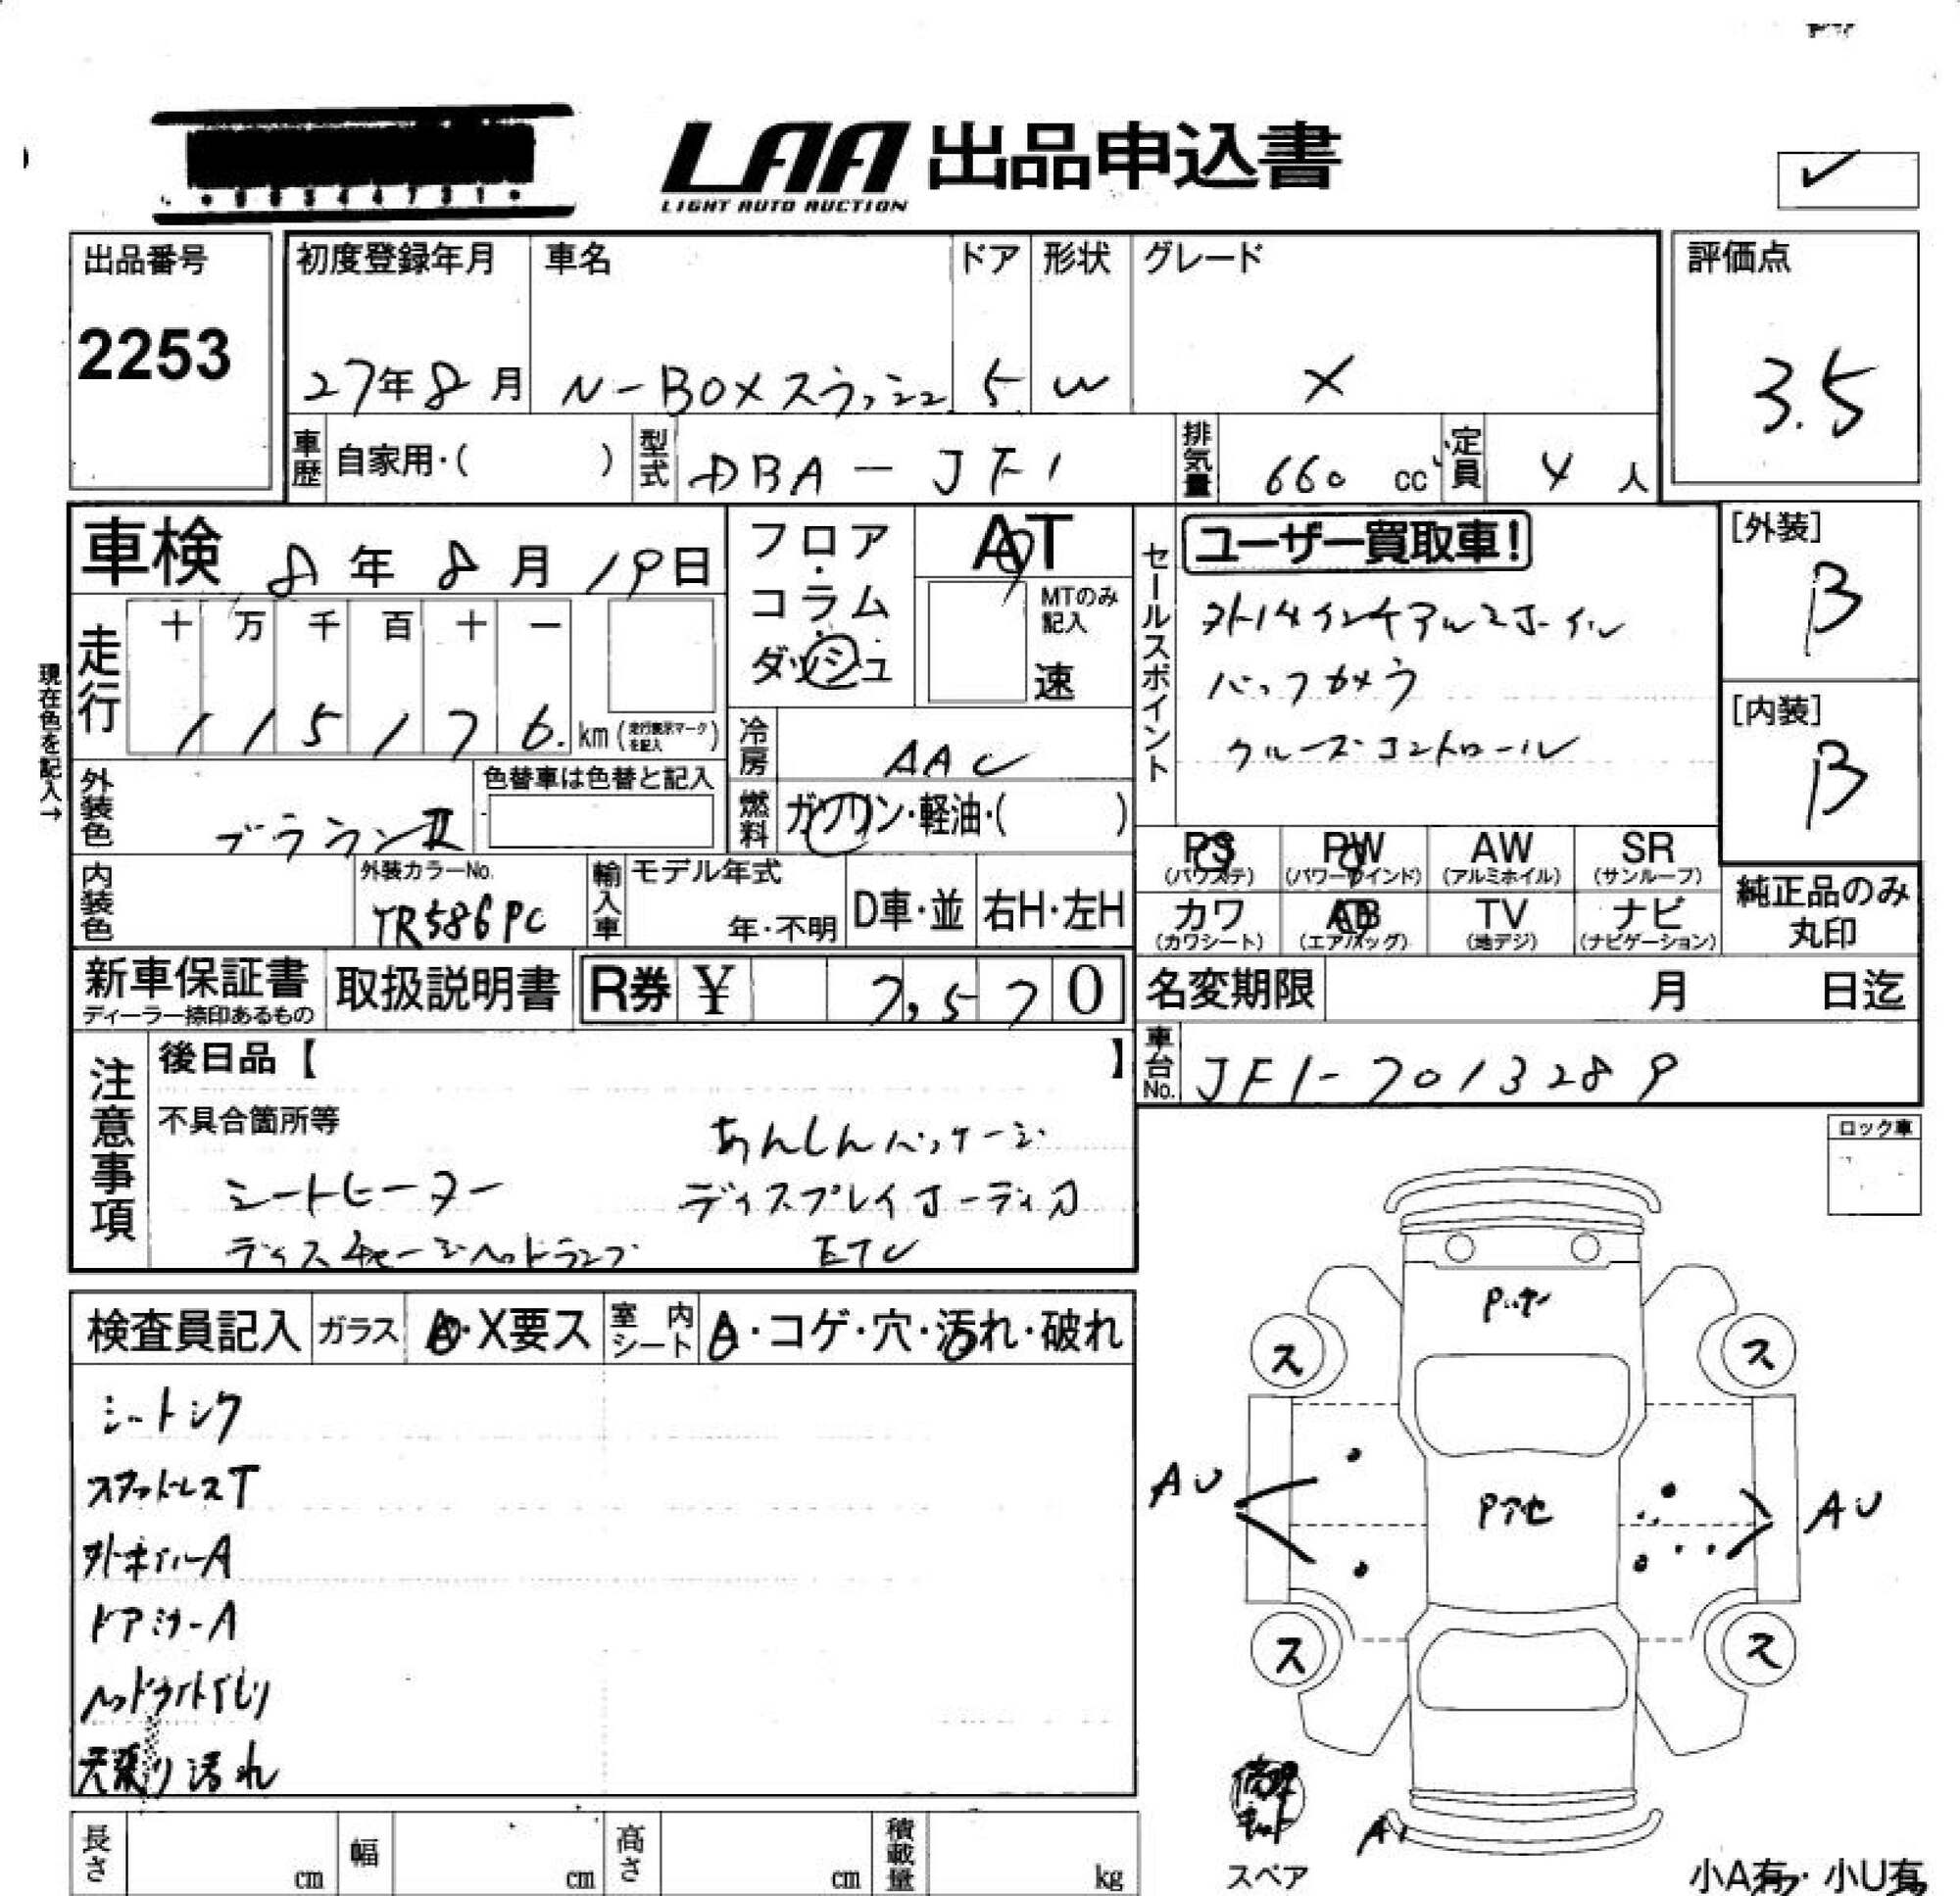 LAA 出品申込書
LIGHT AUTO AUCTION
✓
出品番号
2253
初度登録年月
27年8月
車名
N-BOXスラッシュ
ドア
5
形状
W
グレード
X
評価点
3.5
車歴
自家用・( )
型式
DBA-JF1
排気量
660 cc
定員
4人
車検 8年8月19日
現在色を記入→
走行
十 万 千 百 十 一
1 1 5 1 7 6. km (走行表示マークを記入)
フロア・
コラム・
ダッシュ
AT
MTのみ記入
速
冷房
AAC
燃料
ガソリン・軽油・( )
外装色
ブラウンII
色替車は色替と記入
内装色
外装カラーNo.
YR586PC
輸入車
モデル年式
年・不明
D車・並
右H・左H
新車保証書
ディーラー捺印あるもの
取扱説明書
R券 ¥ 7,570
セールスポイント
ユーザー買取車!
外14インチアルミホイル
バックカメラ
クルーズコントロール
[外装]
B
[内装]
B
PS (パワステ)
PW (パワーウインド)
AW (アルミホイル)
SR (サンルーフ)
カワ (カワシート)
AB (エアバッグ)
TV (地デジ)
ナビ (ナビゲーション)
純正品のみ
丸印
名変期限 月 日迄
車台No.
JF1-7013289
注意事項
後日品【 】
不具合箇所等
あんしんパッケージ
シートヒーター
ディスプレイオーディオ
ディスチャージヘッドランプ
ETC
ロック車
検査員記入
ガラス
A・X要ス
室内シート
A・コゲ・穴・汚れ・破れ
シートシワ
スタッドレスT
外ホイルA
ドアミラーA
天張り汚れ
ス
ス
P アセ
AU
AU
ス
ス
修理キット
スペア
A1
小A有・小U有
長さ cm
幅 cm
高さ cm
積載量 kg